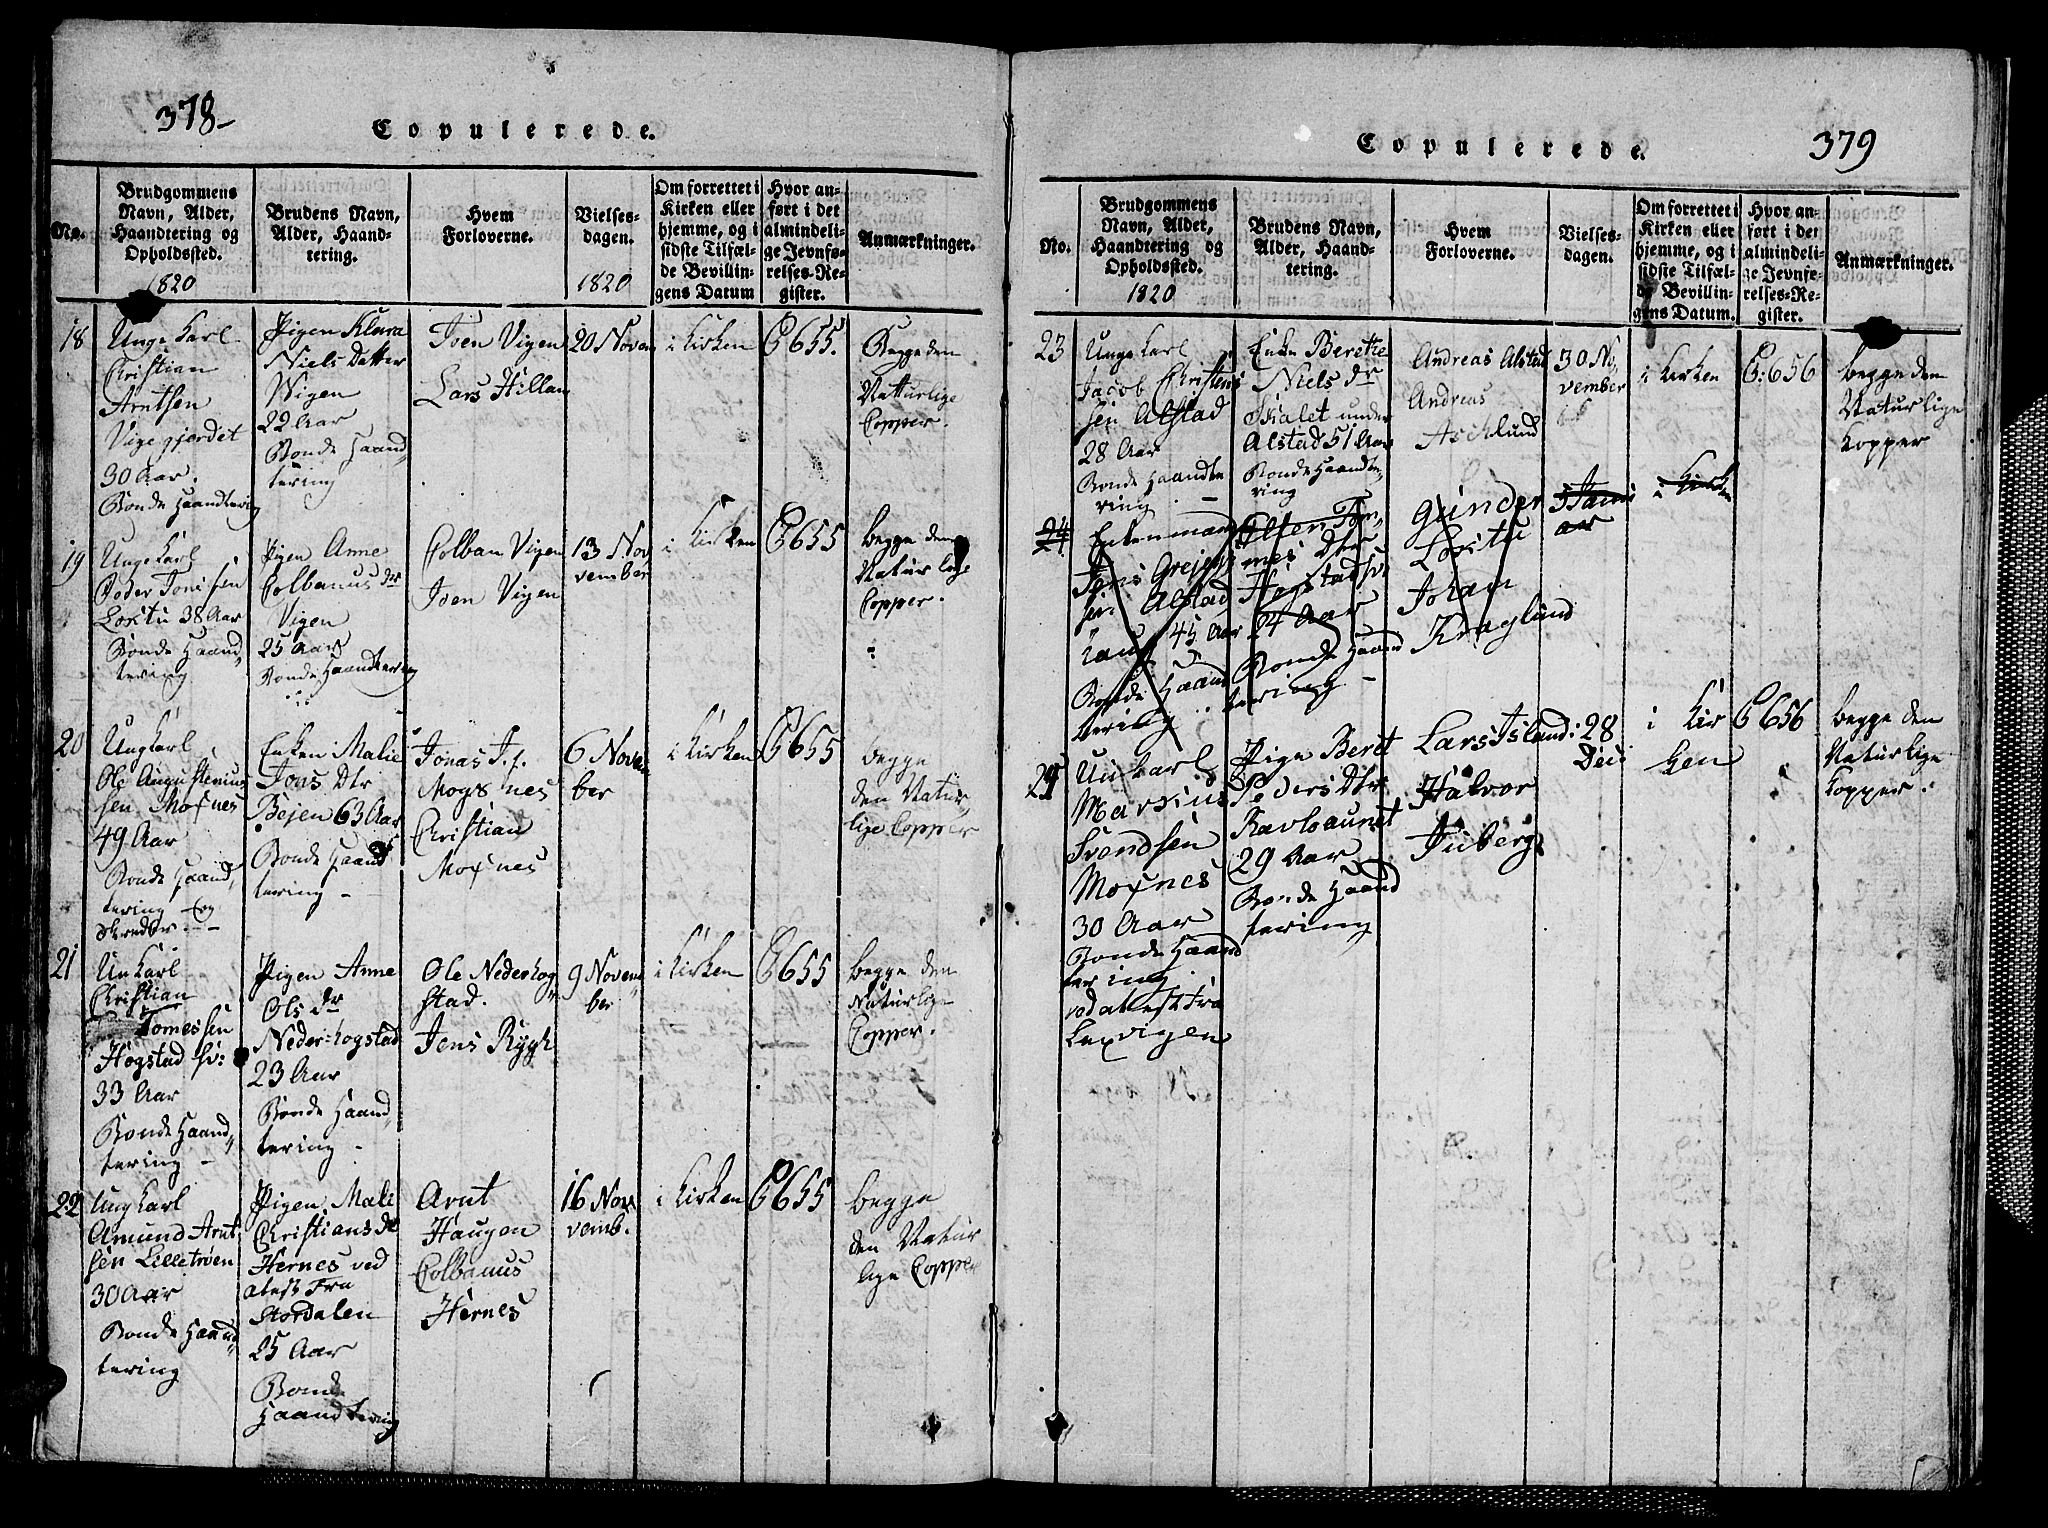 378-
Copulerede.
No.
Brudgommens
Navn, Alder,
Haandtering og
Opholdssted.
1820
Brudens Navn,
Alder, Haand-
tering.
Hvem
Forloverne.
Vielses-
dagen.
1820
Om forrettet i
Kirken eller
hjemme, og i
sidste Tilfæl-
de Bevillin-
gens Datum
Hvor an-
ført i det
almindeli-
ge Jevnfø-
relses-Re-
gister.
Anmærkninger.
18
Unge Karl
Christian
Arntsen
Vigegjerdet
30 Aar.
Bonde Haandtering
Pigen Klara
Niels Datter
Wigen
22 Aar
Bonde Haand
tering
Joen Vigen
Lars Hillan
20 Novem
i Kirken
C 655.
Begge den
Natturlige
Copper.
19
Unge Karl
Peder Tonisen
Loktu 38 Aar
Bonde Haand
tering
Pigen Anne
Colbanus dr
Vigen
25 Aar
Bonde Haandtering
Colban Vigen
Joen Vigen
13 Nov
vember
i Kirken
C 655
begge den
Naturlige
Copper.
20
Ung Karl
Ole Augustinius
sen Moxnes
49 Aar
Bonde Haand
tering og
Skredder
Enken Malie
Jons Dtr
Bejen 63 Aar
Bonde Haand
tering -
Jonas J. f.
Mogsnes
Christian
Moxnes
6 Novem
ber
i Kirken
C 655
begge
den Natur
lige Copper
21
Un Karl
Christian
Tomessen
Hogstad sv:
33 Aar
Bonde Haand
tering -
Pigen Anne
Ols dr
Neder-hogstad
23 Aar
Bonde Haand
tering -
Ole Nederhog
stad.
Jens Rygh
9 Novem
ber
i Kirken
C 655
begge den
Naturlige
Copper.
22
Ung Karl
Amund Arnt
sen Lilletrøen
30 Aar
Bonde Haand
tering
Pigen Mali
Christians dr
Hernes ved
atest Fra
Stordalen
25 Aar
Bonde
Haandtering
Arnt
Haugen
Colbanus
Hernes
16 Nov
vemb.
i Kirken
C 655
begge
den Natur
lige Copper
Copulerede.
379
No.
Brudgommens
Navn, Alder,
Haandtering og
Opholdssted.
1820
Brudens Navn,
Alder, Haand-
tering.
Hvem
Forloverne.
Vielses-
dagen.
Om forrettet i
Kirken eller
hjemme, og i
sidste Tilfæl-
de Bevillin-
gens Datum.
Hvor an-
ført i det
almindeli-
ge Jevnfø-
relses-Re-
gister.
Anmærkninger.
23
Unge Karl
Jacob Christens
sen Alstad
28 Aar
Bonde Haandte
ring
Enke Berethe
Niels dr
Skalet under
Alstad 51 Aar
Bonde Haandte
ring
Andreas Alstad
Andreas
Asklund
30 No
vember
i Kirken
C: 656
begge den
Naturlige
Kopper
24
Enkemand
Jens Grejer
sen Alstad
45 Aar
Bonde Haand
tering
Elsen Tom
mes Dter
Hogstad sv
24 Aar
Bonde Haand
tering
Gunder
Loktu
Johan
Kraglund
5 Janu
ar
i Kirken
25
Un Karl
Markius
Svendsen
Moxnes
30 Aar
Bonde Haand
tering
ved atest Fra
Lexvigen
Pige Beret
Peders Dtr
Ravloaunet
29 Aar
Bonde Haand
tering
Lars Island:
Halvor
Tuberg
28
Des:
i Kir
ken
C 656
begge den
Naturlige
Kopper.